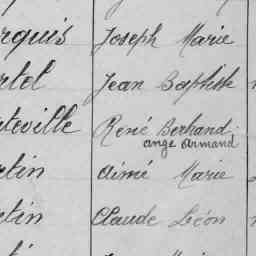 rquis Joseph Marie
rtel Jean Baptiste
teville René Bertrand
ange Armand
rtin Aimé Marie
rtin Claude Léon